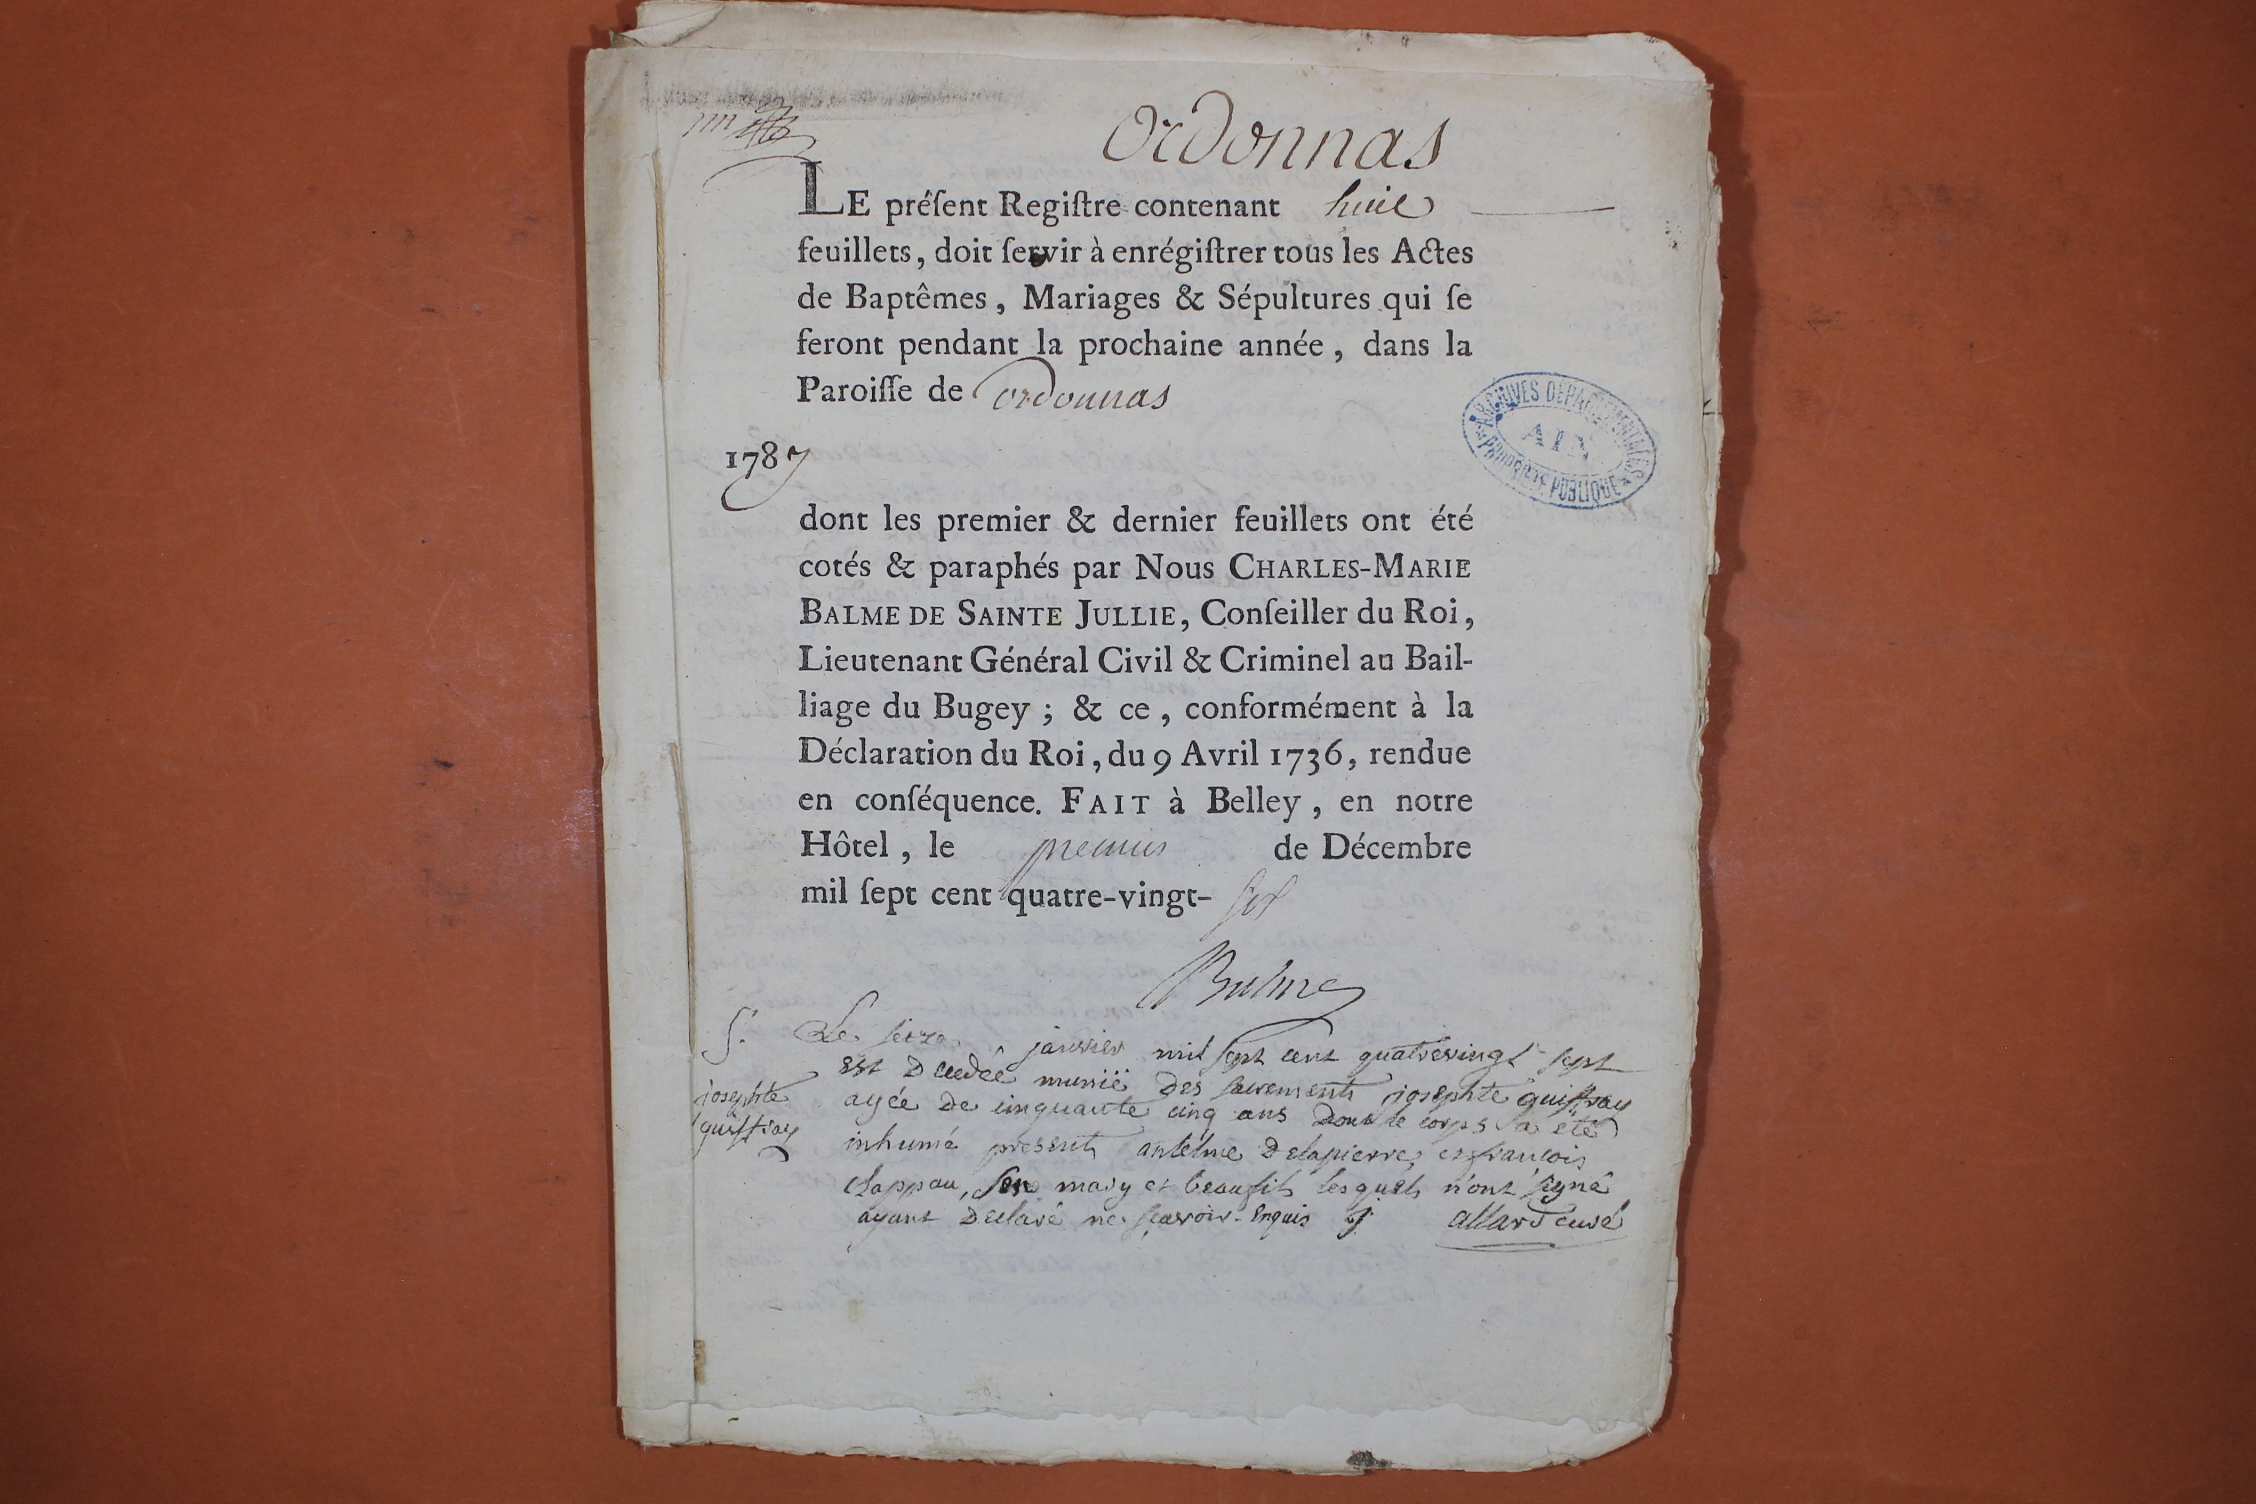 Ordonnas
LE préſent Regiſtre contenant huit
feuillets, doit ſervir à enrégiſtrer tous les Actes
de Baptêmes, Mariages & Sépultures qui ſe
feront pendant la prochaine année, dans la
Paroiſſe de ordonnas
1787
ARCHIVES DÉPARTEMENTALES
AIN
PROPRIÉTÉ PUBLIQUE
dont les premier & dernier feuillets ont été
cotés & paraphés par Nous CHARLES-MARIE
BALME DE SAINTE JULLIE, Conſeiller du Roi,
Lieutenant Général Civil & Criminel au Bail-
liage du Bugey ; & ce, conformément à la
Déclaration du Roi, du 9 Avril 1736, rendue
en conſéquence. FAIT à Belley, en notre
Hôtel, le premier de Décembre
mil ſept cent quatre-vingt- six
Balme
S. Le seize janvier mil sept cent quatrevingt sept
est decedée munië des sacrements josephte guiffray
josephte
guiffray
agée de cinquante cinq ans dont le corps a eté
inhumé presents antelme Delapierre et francois
Chappau, son mary et beaufils lesquels n'ont signé
ayant declaré ne sçavoir. Enquis allard curé